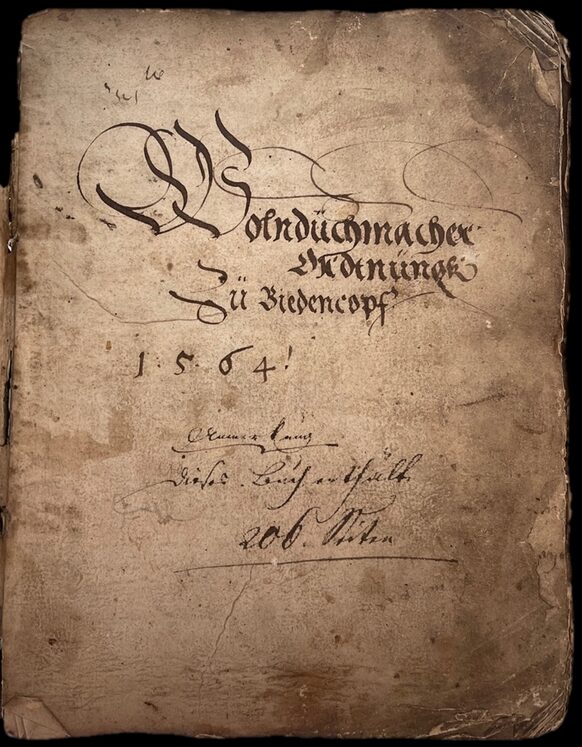 Wolndüchmacher
Ordtnüngk
Zü Biedencopf
1·5·6·4!
Anmerkung
Dieses Buch enthält
206. Seiten